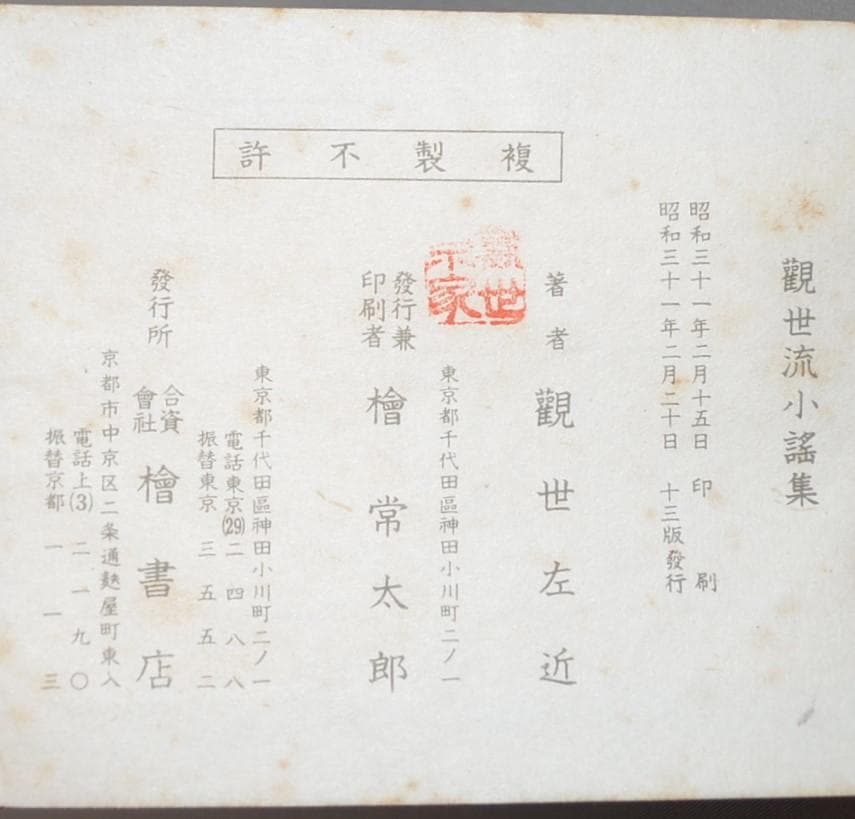 觀世流小謠集
昭和三十一年二月十五日 印刷
昭和三十一年二月二十日 十三版發行
複製不許
著者 觀世左近
東京都千代田區神田小川町二ノ一
發行兼印刷者 檜常太郎
東京都千代田區神田小川町二ノ一
電話東京(29)二四八八
振替東京 三五五二
發行所 合資會社 檜書店
京都市中京区二条通麩屋町東入
電話上(3)二一九〇
振替京都 一一三